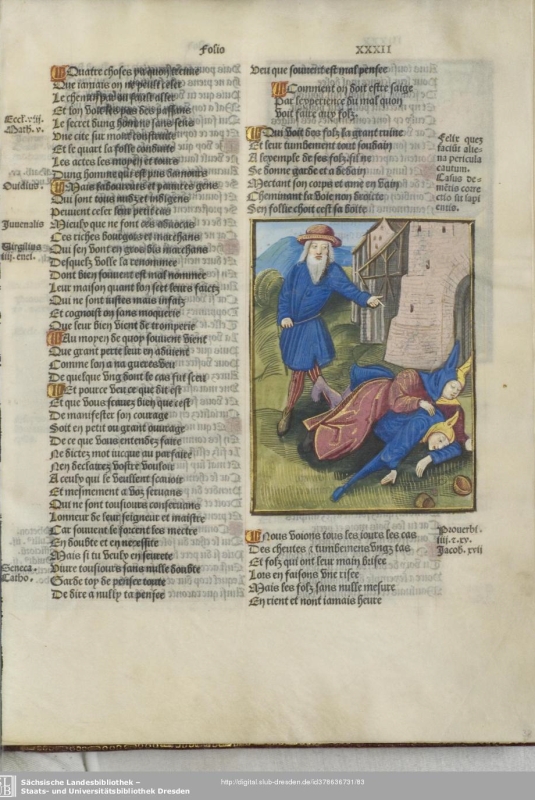 Folio
XXXII
Quatre choses
Que iamais on ne peult celer
Le chemin
Et lon voit les pas des passans
Le secret dung homme sans sens
Une cite sur mont construite
Et le quart la folle conduite
Les actes les moyen et tours
Dung homme qui est pris damours
Mais laboureurs et pauures gens
Qui sont tous nudz et indigens
Peuuent celer leur petit cas
Mieulx que ne font ces aduocas
Ces riches bourgois et marchans
Qui sen vont en gros bis marchans
Desquelz volle la renommee
Dont bien souuent est mal nommee
Leur maison quant lon scet leurs faictz
Qui ne sont iustes mais infaitz
Et cognoist on sans moquerie
Que leur bien vient de tromperie
Au moyen de quoy souuent vient
Que grant perte leur en aduient
Comme lon a na gueres veu
De quelque vng dont le cas fut sceu
Et pource veu ce que dit est
Et que vous scauez bien que cest
De manifester son courage
Soit en petit ou grant ouurage
De ce que vous entendez faire
Ne dictez mot iucque au parfaire
Nen declairez vostre vouloir
A ceulx qui le veullent scauoir
Et mesmement a voz seruans
Qui ne sont tousiours conseruans
Lonneur de leur seigneur et maistre
Car souuent se forcent les mectre
En doubte et en necessite
Mais si tu veulx en seurete
Viure tousiours sans nulle doubte
Garde toy de penser toute
De dire a nully ta pensee
Eccl. vii.
Math. v.
Ouidius.
Juuenalis
Virgilius
iiij. enei.
Seneca.
Catho.
Veu que souuent est mal pensee
Comment on doit estre saige
Par lexperience du mal quon
Voit faire aux folz.
Qui voit des folz la grant ruine
Et leur tumbement tout soudain
A lexemple de ses folz sil ne
Se donne garde et a dedain
Mectant son corps et ame en vain
Cheminant la voie non droicte
Sen follie choit cest sa boite
Felix quez
faciūt alie-
na pericula
cautum.
Casus de-
mētis corre
ctio sit sapi
entis.
Nous voions tous les iours les cas
Des cheutes & tumbemens vngz tas
Et folz qui ont leur main brisee
Lors en faisons vne risee
Mais les folz sans nulle mesure
En rient et nont iamais heure
Prouerbi.
iiij. & xv.
Jacob. xvii
Sächsische Landesbibliothek –
Staats- und Universitätsbibliothek Dresden
http://digital.slub-dresden.de/id376636731/83